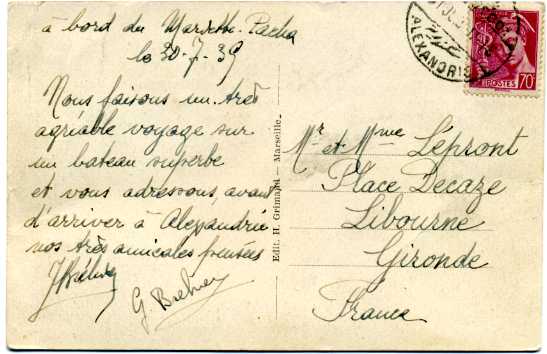 à bord du Mariette-Pacha
le 30-7-39
Nous faisons un très
agréable voyage sur
un bateau superbe
et vous adressons, avant
d'arriver à Alexandrie
nos très amicales pensées
G
Edit. H. Grimaud — Marseille.
ALEXANDRIE
POSTES
70c
Mr et Mme Lépront
Place Decaze
Libourne
Gironde
France